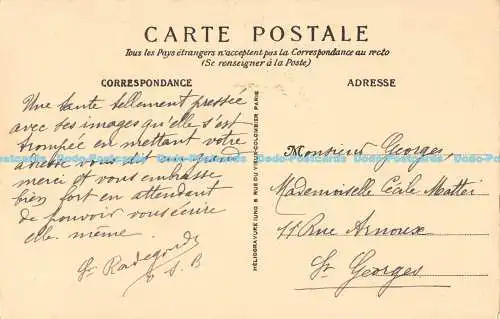 CARTE POSTALE
Tous les Pays étrangers n'acceptent pas la Correspondance au recto
(Se renseigner à la Poste)
CORRESPONDANCE
Une tante tellement pressée
avec ses images qu'elle s'est
trompée en mettant votre
adresse vous dit un grand
merci et vous embrasse
bien fort en attendant
de pouvoir vous écrire
elle même.
St Radegonde
S. B
HÉLIOGRAVURE JUNG 8 RUE DU VIEUX-COLOMBIER PARIS
ADRESSE
Monsieur Georges,
Mademoiselle Cécile Mattei
11 Rue Arnoux
St Georges